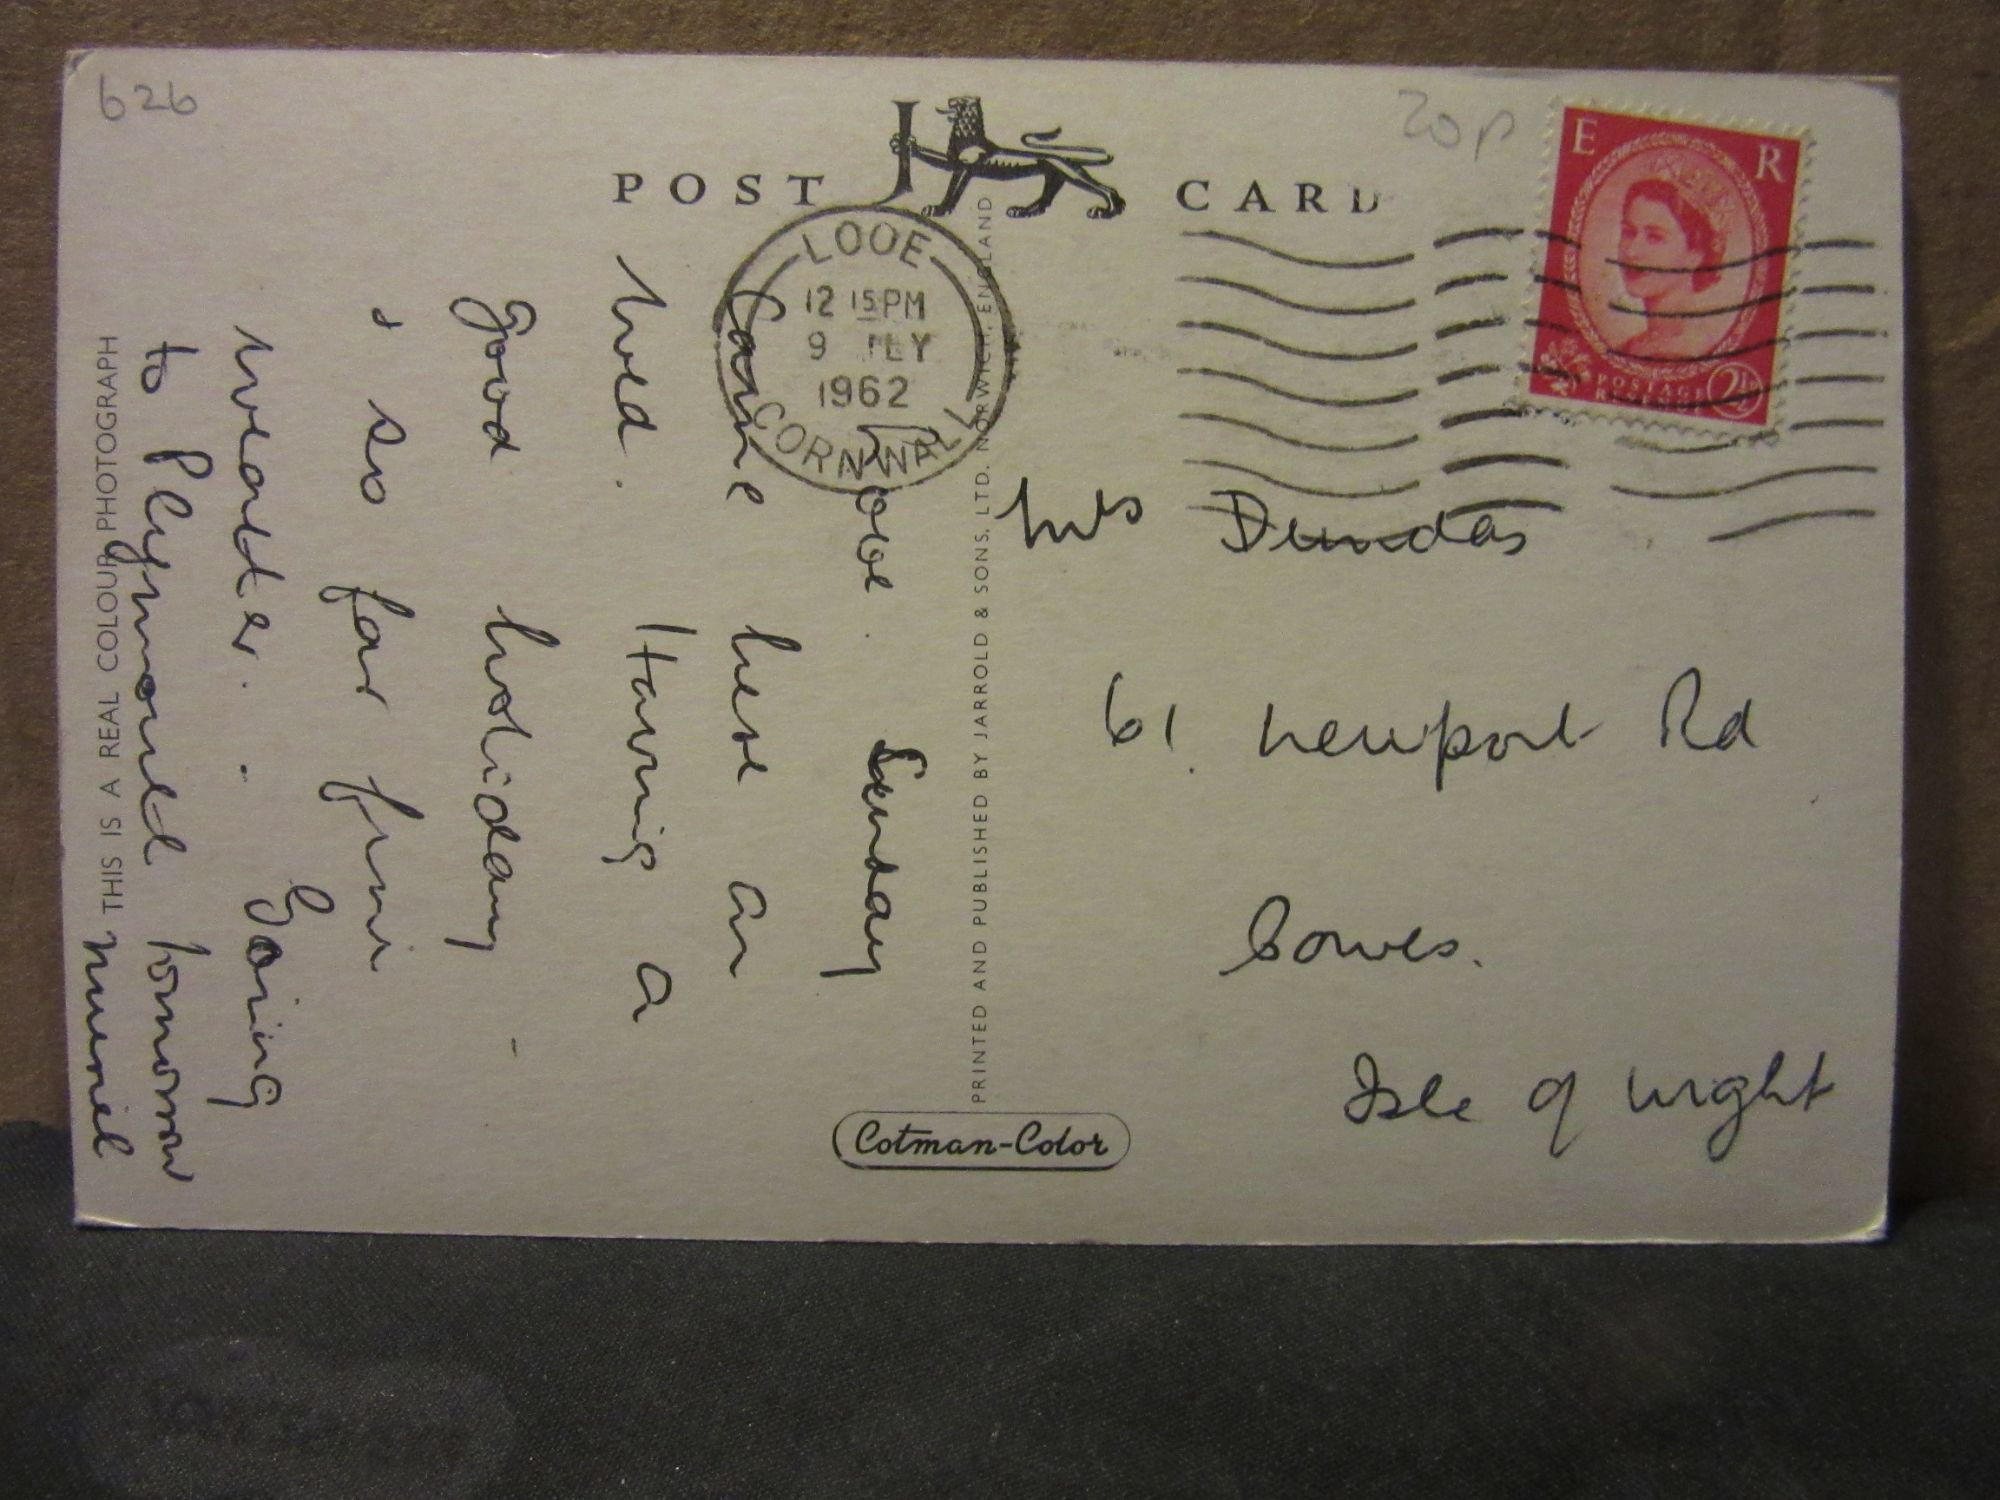 626
20p
POST CARD
E R
POSTAGE
REVENUE
2½D
LOOE
12 15 PM
9 JLY
1962
CORNWALL
Looe. Sunday
Came here on
Wed. Having a
good holiday
& so far fine
weather. Going
to Plymouth tomorrow
Muriel
THIS IS A REAL COLOUR PHOTOGRAPH
PRINTED AND PUBLISHED BY JARROLD & SONS, LTD. NORWICH, ENGLAND
Mrs Dundas
61. Newport Rd
Cowes.
Isle of Wight
Cotman-Color